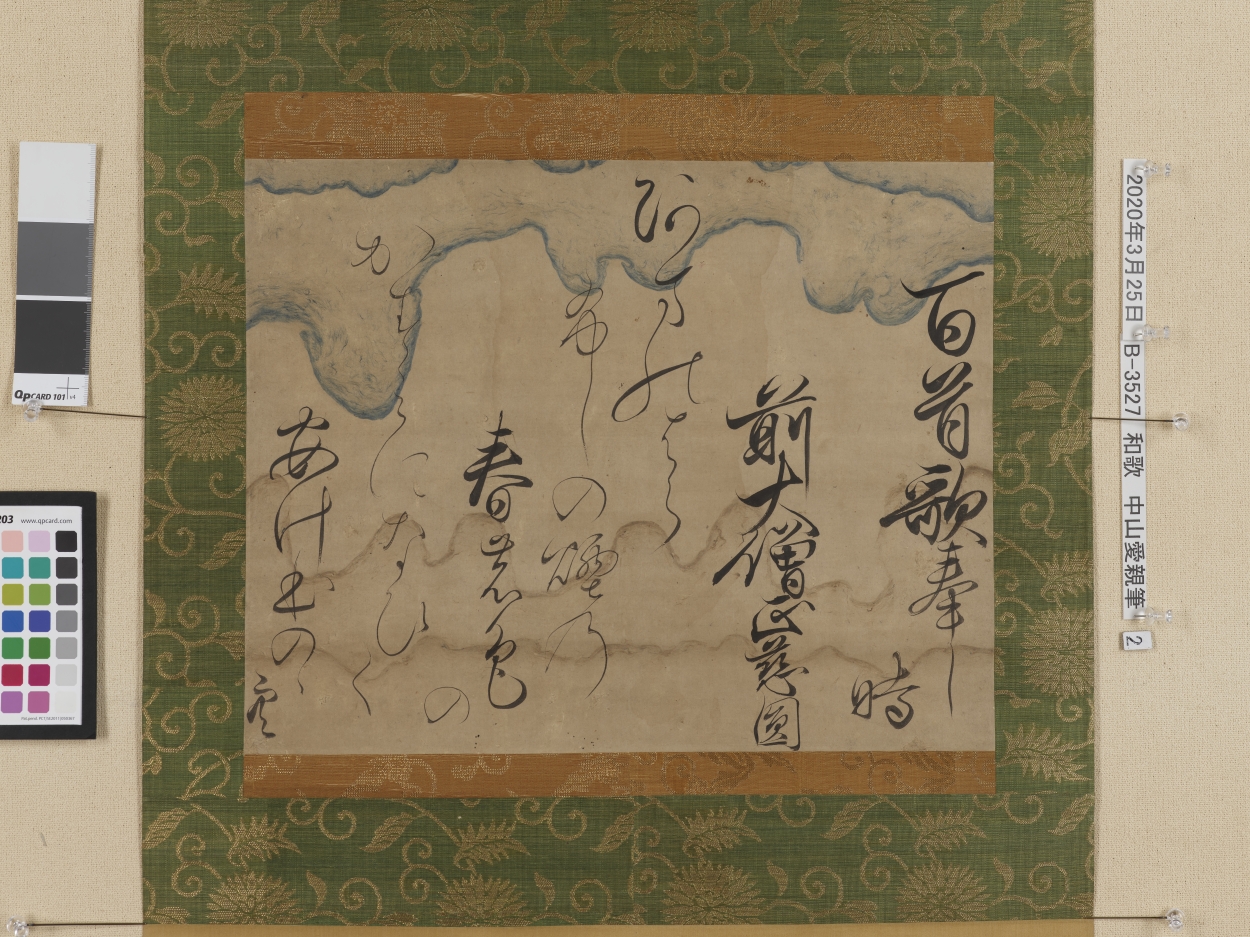 百首歌奉し時
前大僧正慈圓
阿まのはら
布しの煙乃
春の色の
かすみになひく
安けほのゝ空
2020年3月25日 B-3527 和歌 中山愛親筆 2
QpCARD 101 v4
203 www.qpcard.com